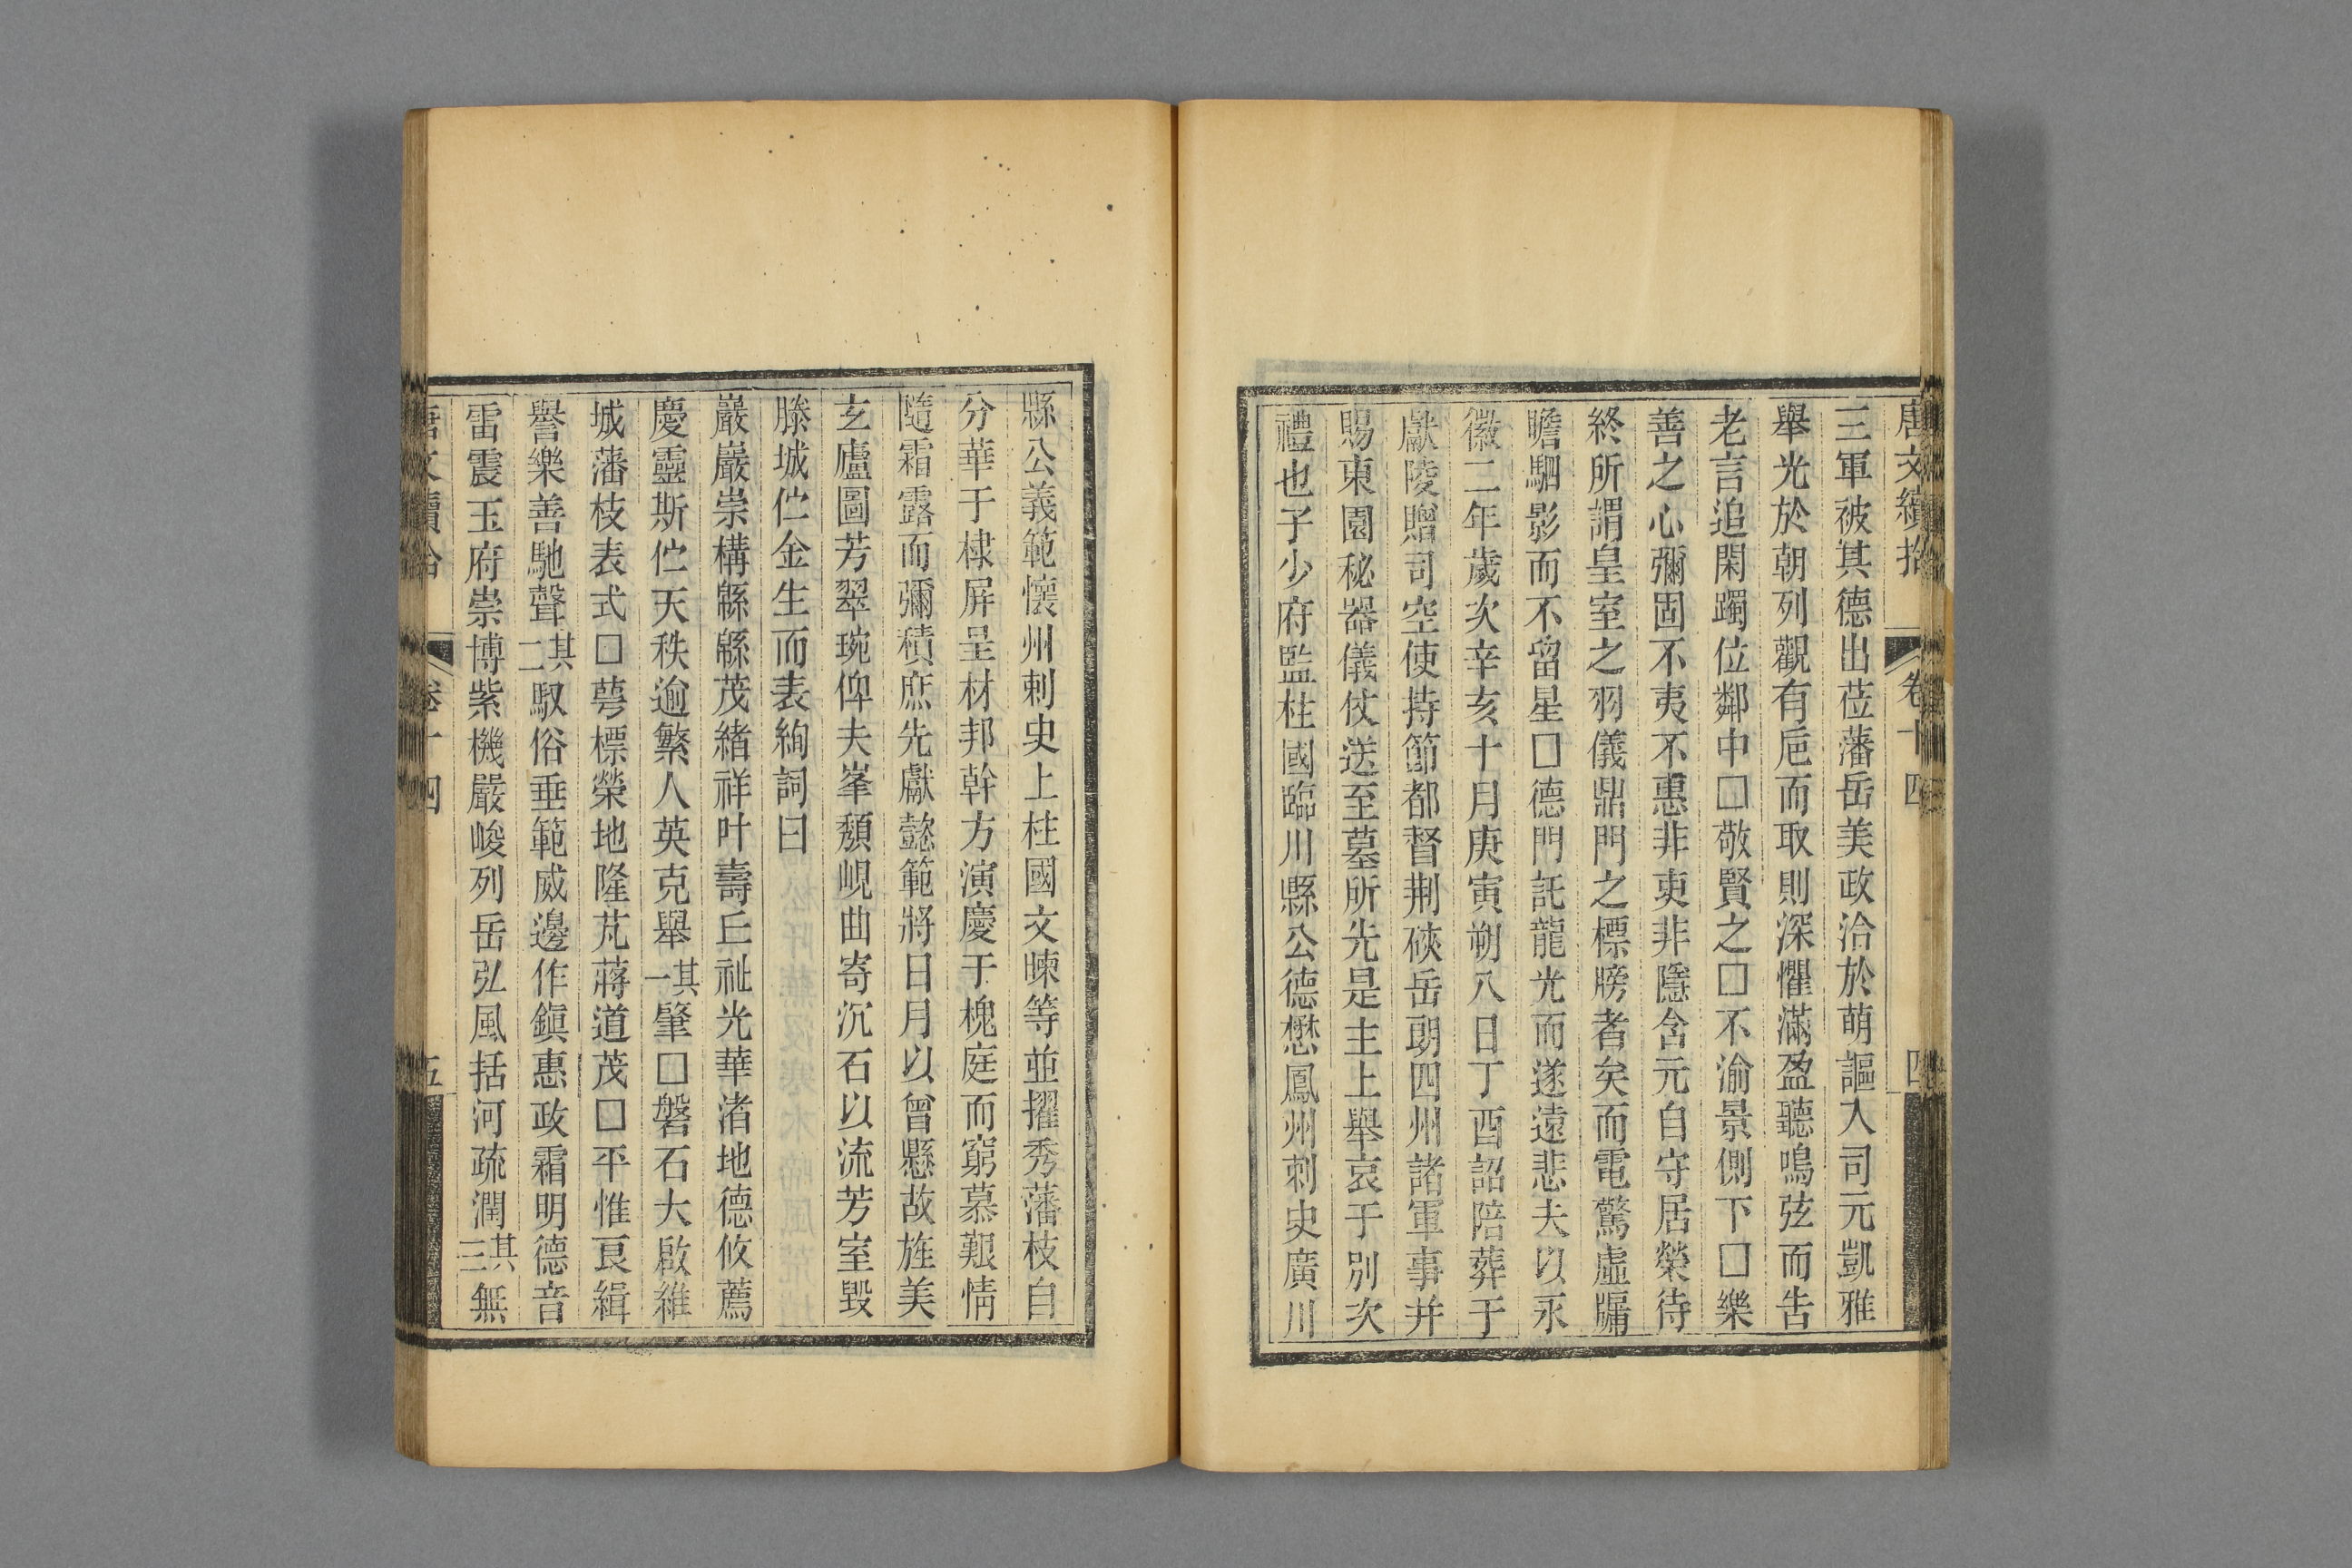 唐文續拾 卷十四 四
三軍被其德出莅藩岳美政洽於萌謳入司元凱雅
舉光於朝列觀有巵而取則深懼滿盈聽鳴弦而告
老言追閑躅位鄰中□敬賢之□不渝景側下□樂
善之心彌固不夷不惠非吏非隱含元自守居榮待
終所謂皇室之羽儀鼎門之標牓者矣而電驚虛牖
瞻駟影而不留星□德門託龍光而遂遠悲夫以永
徽二年歲次辛亥十月庚寅朔八日丁酉詔陪葬于
獻陵贈司空使持節都督荆硤岳朗四州諸軍事并
賜東園秘器儀仗送至墓所先是主上舉哀于別次
禮也子少府監柱國臨川縣公德懋鳳州刺史廣川
縣公義範懷州刺史上柱國文暕等並擢秀藩枝自
分華于棣屏呈材邦幹方演慶于槐庭而窮慕艱情
隨霜露而彌積庶先獻懿範將日月以曾懸故旌美
玄廬圖芳翠琬俾夫峯頹峴曲寄沉石以流芳室毀
滕城伫金生而表絢詞曰
巖巖崇構緜緜茂緒祥叶壽丘祉光華渚地德攸薦
慶靈斯伫天秩逾繁人英克舉其一肇□磐石大啟維
城藩枝表式□萼標榮地隆芃蔣道茂□平惟哀緝
譽樂善馳聲其二馭俗垂範威邊作鎭惠政霜明德音
雷震玉府崇博紫機嚴峻列岳弘風括河疏潤其三無
唐文續拾 卷十四 五